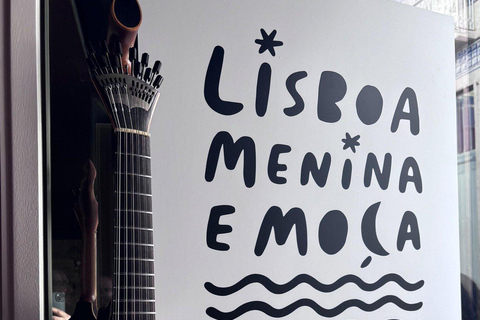 LISBOA
MENINA
E MOÇA